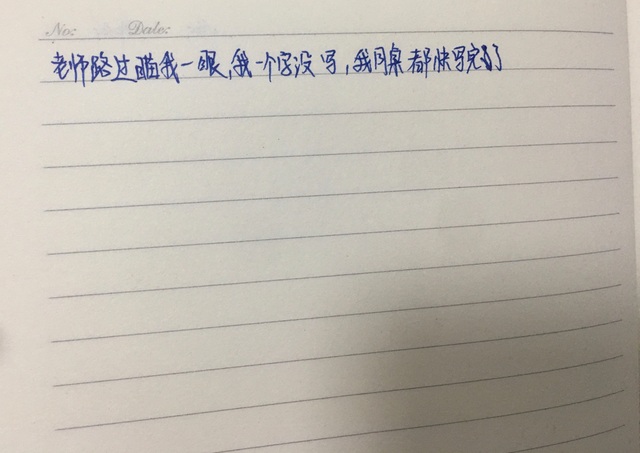 No:  Date:
老师路过瞄我一眼,我一个字没写,我同桌都快写完了